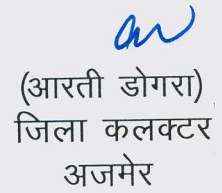 (आरती डोगरा)
जिला कलक्टर
अजमेर